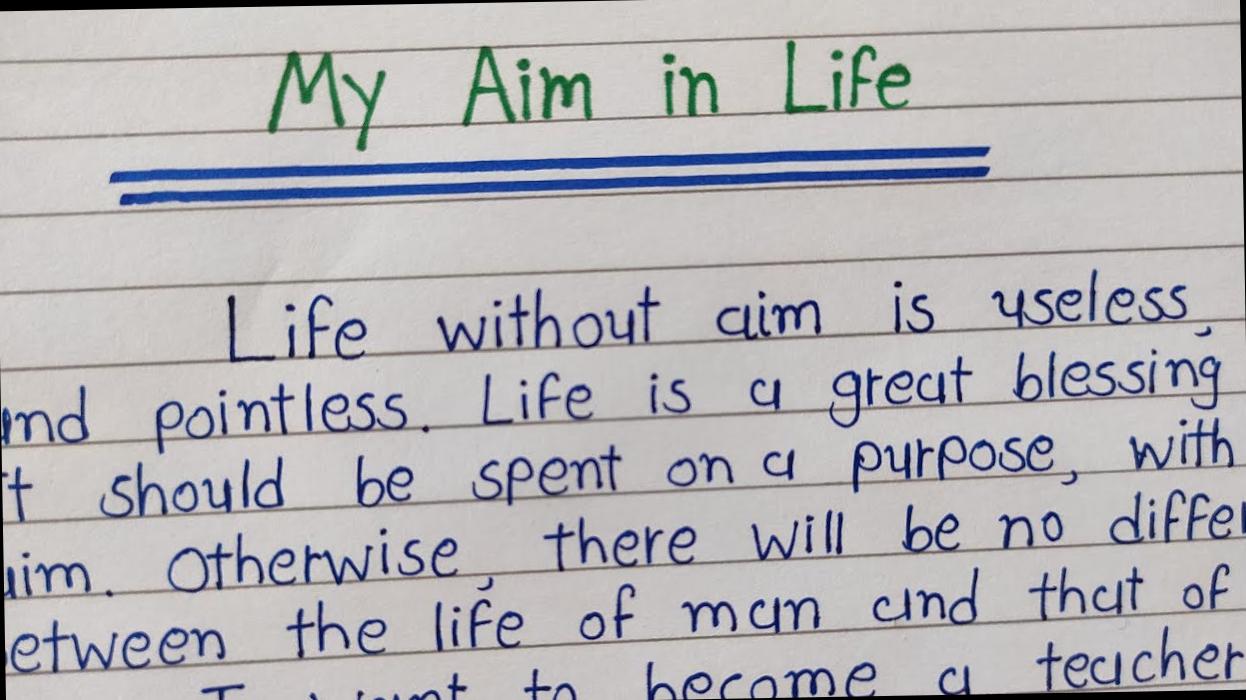 My Aim in Life
Life without aim is useless,
and pointless. Life is a great blessing
t should be spent on a purpose, with
aim. Otherwise, there will be no differ
etween the life of man and that of
I want to become a teacher